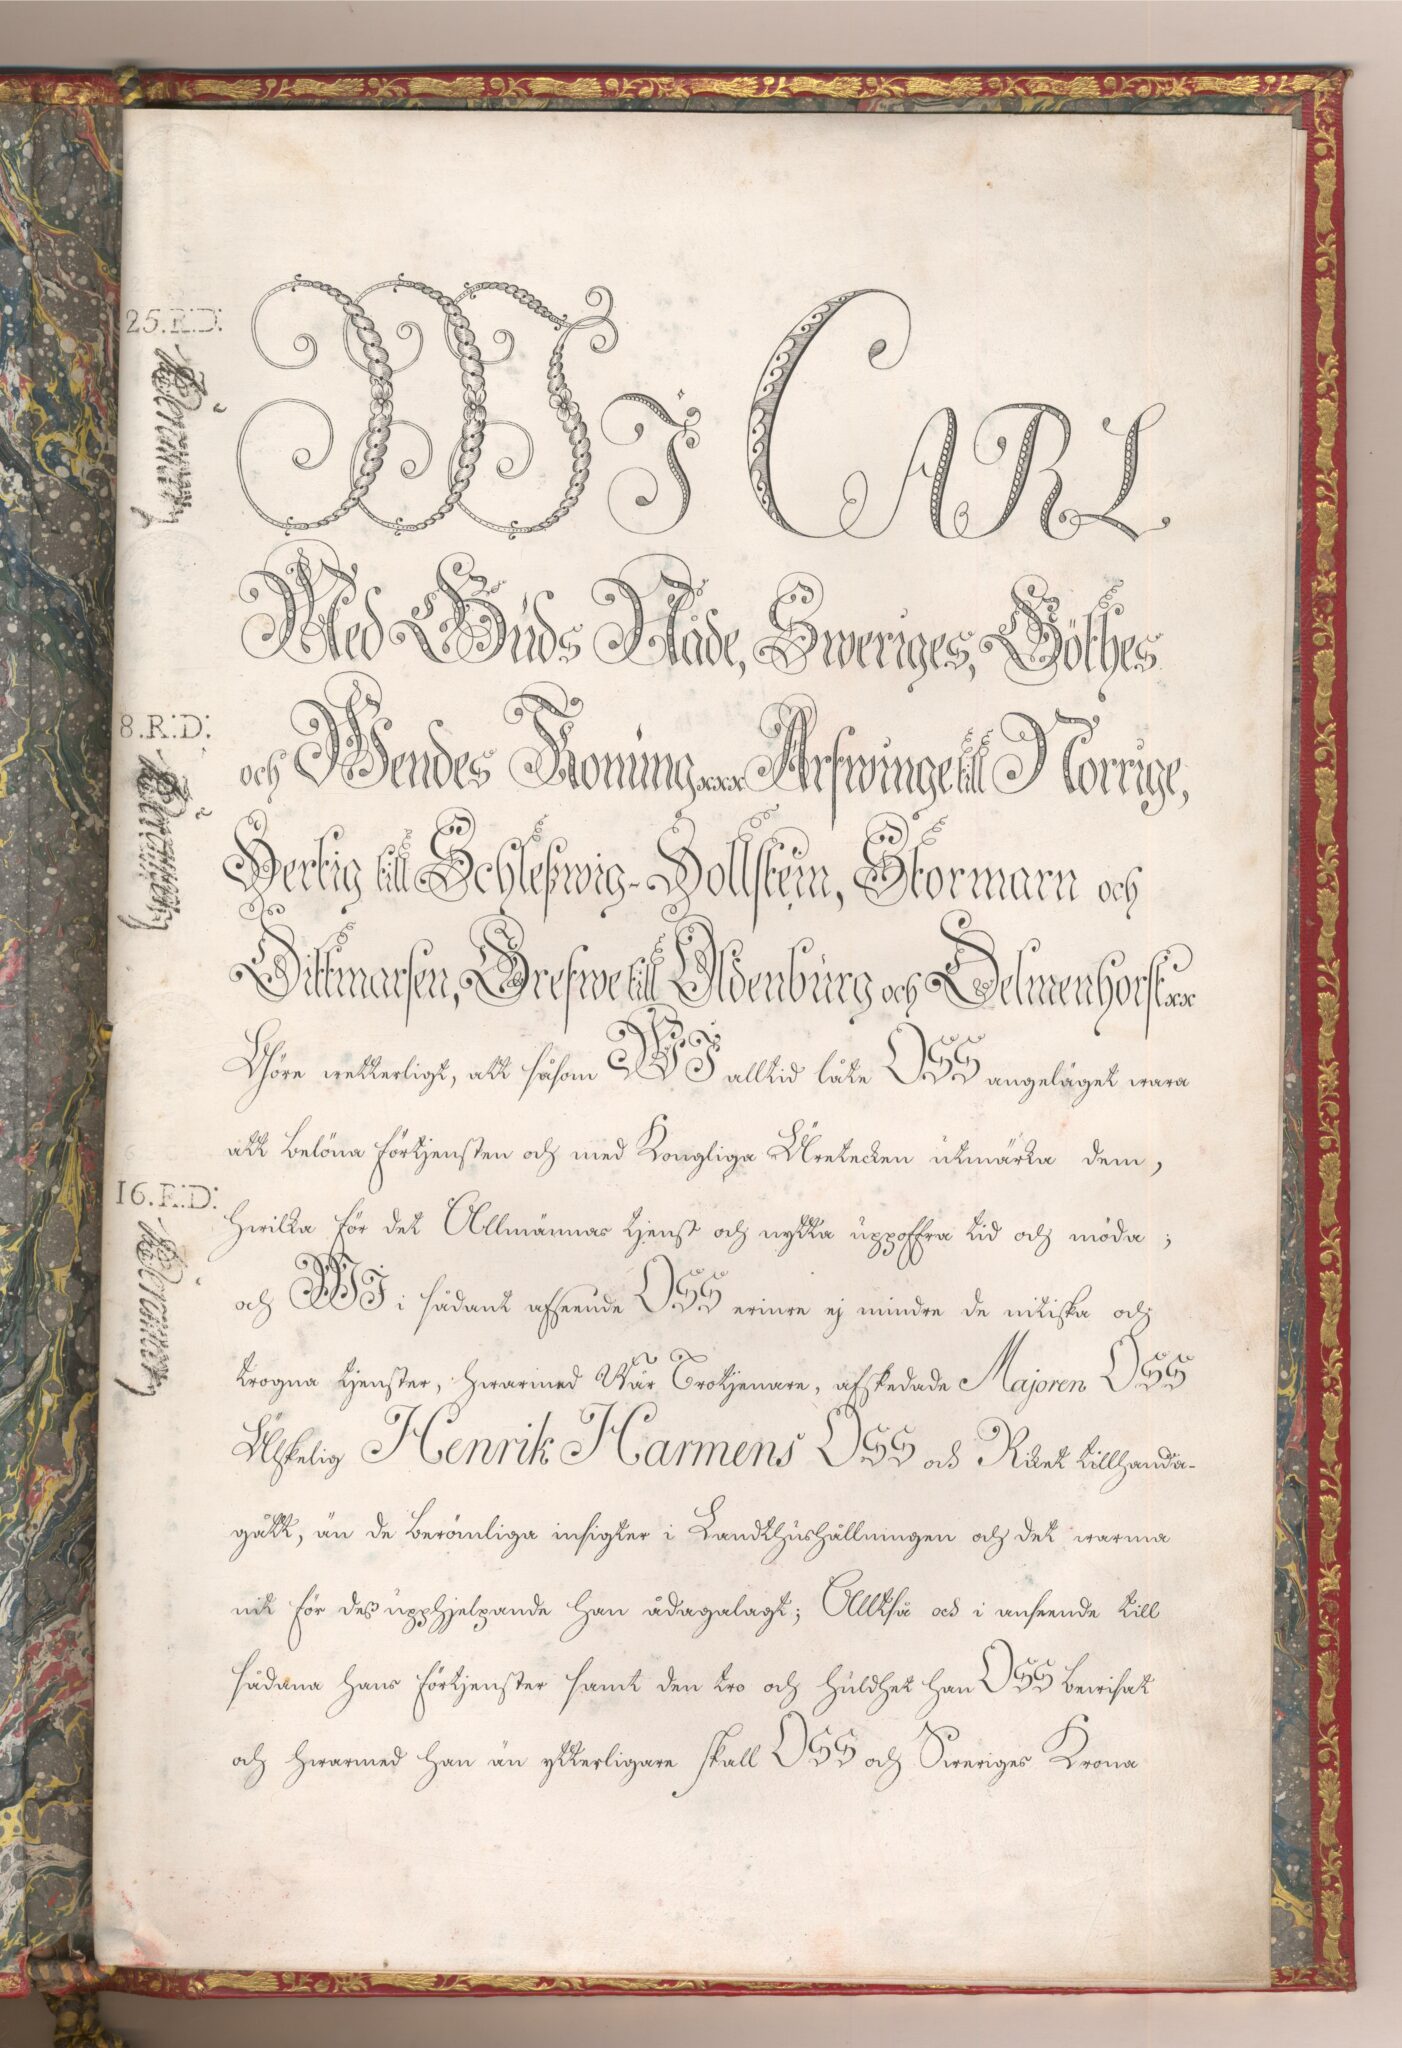 25.R:D:
8.R:D:
16.R:D:
WJ CARL
Med Gúds Nåde, Sweriges, Göthes
och Wendes Konúng xxx Arfwinge till Norrige,
Hertig till Schleßwig-Hollstein, Stormarn och
Dittmarsen, Grefwe till Oldenbúrg och Delmenhorst xx
Giöre wetterligt, att såsom WJ alltid låte OSS angeläget wara
att belöna förtjensten och med Kongliga Äretecken útmärka dem,
hwilka för det Allmännas tjenst och nytta úppoffra tid och möda;
och WJ i sådant afseende OSS erinre ej mindre de nitiska och
trogna tjenster, hwarmed Wår Trotjenare, afskedade Majoren OSS
Älskelig Henrik Harmens OSS och Riket tillhanda-
gått, än de berömliga insigter i Landthúshållningen och det warma
nit för deß úpphjelpande han ådagalagt; Alltså och i anseende till
sådana hans förtjenster samt den tro och húldhet han OSS bewisat
och hwarmed han än ytterligare skall OSS och Sweriges Krona